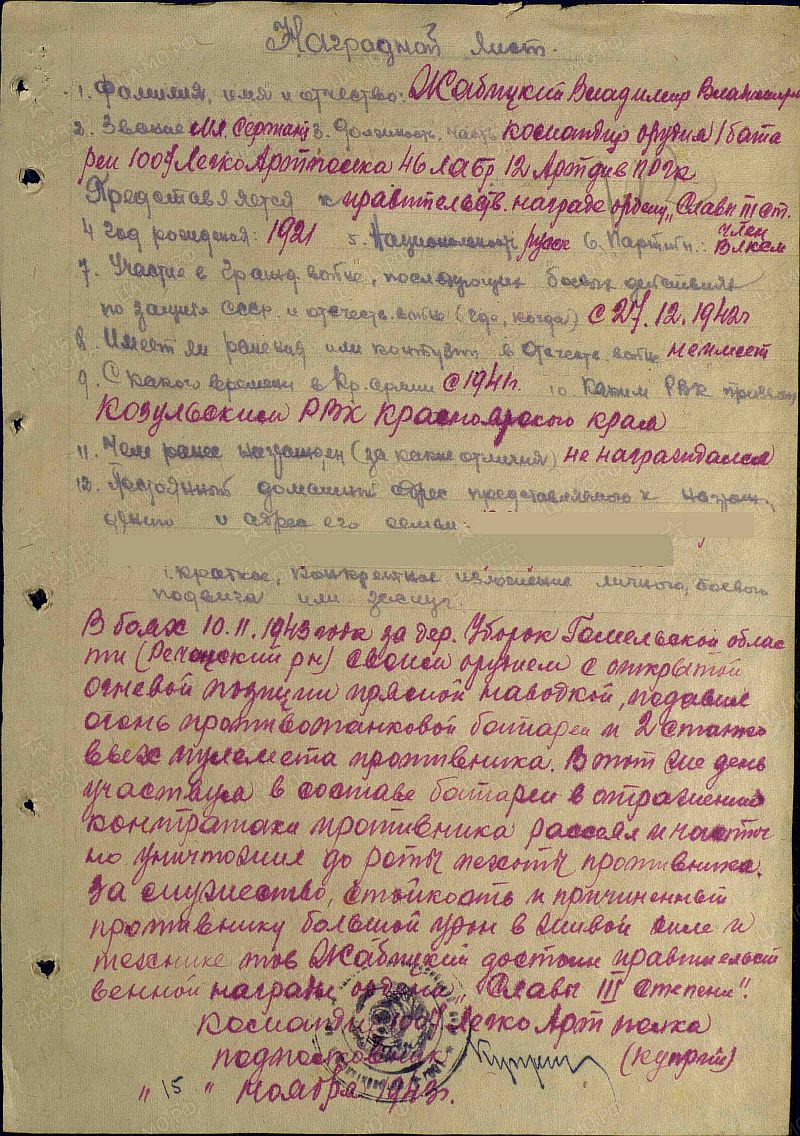 Наградной лист.
1. Фамилия, имя и отчество: Жабицкий Владимир
2. Звание Мл. Сержант 3. Должность, часть командир орудия 1 бата
реи 1007 ЛегкоАртполка 46 Лабр 12 Артдив ПРГК
Представляется к правительств. награде ордену „Славы III ст.
4 Год рождения: 1921 5. Национальность русск 6. Партийн.: член ВЛКСМ
7. Участие в гражд. войне, последующих боевых действиях
по защите СССР и отечеств. войне (где, когда) с 27.12.1942г
8. Имеет ли ранения или контузии в Отечеств. войне не имеет
9. С какого времени в Кр. армии с 1941г. 10 Каким РВК призван
Козульским РВК Красноярского края
11. Чем ранее награжден (за какие отличия) не награждался
12. Постоянный домашний адрес представляемого к награж
дению и адрес его семьи:
1. Краткое, конкретное изложение личного, боевого
подвига или заслуг.
В боях 10.11.1943 года за дер. Уборок Гомельской облас
ти (Речецкий рн) своим орудием с открытой
огневой позиции прямой наводкой, подавил
огонь противотанковой батареи и 2 станко
вых пулемета противника. В этот же день
участвуя в составе батареи в отражении
контратаки противника рассеял и частич
но уничтожил до роты пехоты противника.
За мужество, стойкость и причиненный
противнику большой урон в живой силе и
технике тов Жабицкий достоин правительст
венной награды ордена „Славы III степени".
Командир 1007 ЛегкоАртполка
подполковник (Куприй)
„ 15 " Ноября 1943г.